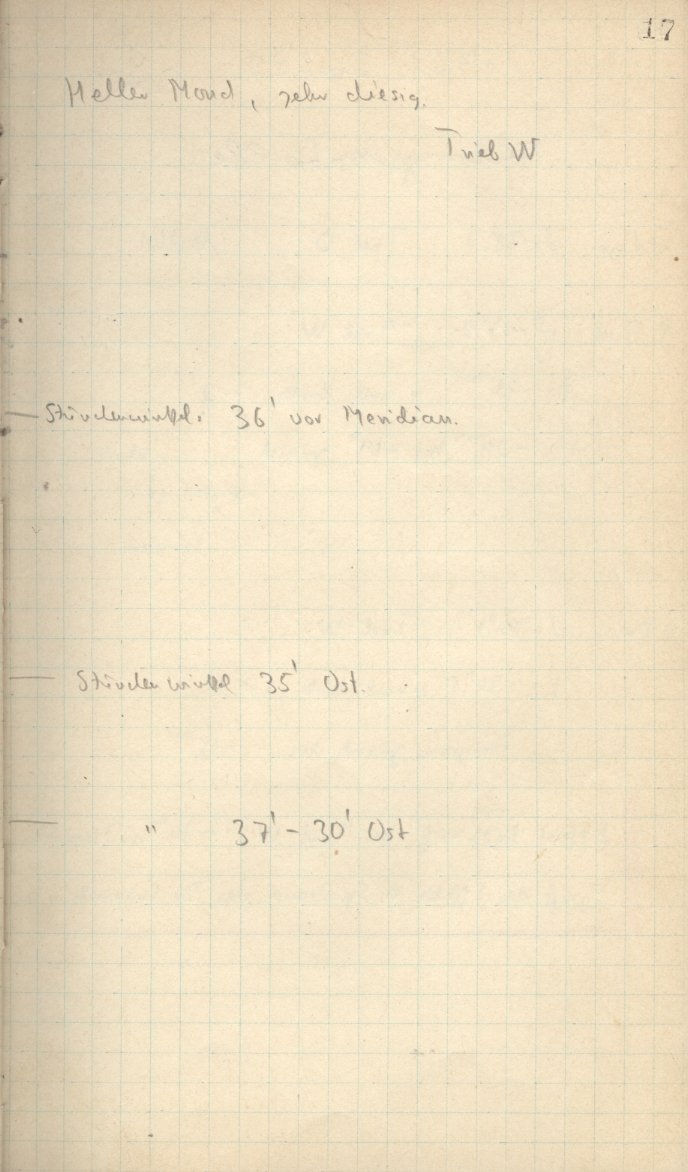 17
Heller Mond, sehr diesig.
Trieb W
— Stundenwinkel. 36' vor Meridian.
— Stundenwinkel 35' Ost.
— " 37' - 30' Ost